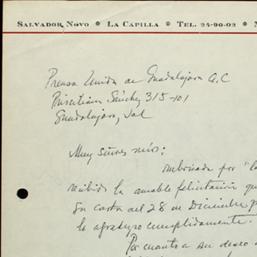 SALVADOR NOVO * LA CAPILLA * TEL. 25-90-02 *
Prensa Unida de Guadalajara A.C
Prisciliano Sánchez 315-101
Guadalajara, Jal
Muy señores míos:
por "la
recibido la amable felicitación que
su carta del 28 de Diciembre p
la agradezco cumplidamente.
Por cuanto a su deseo